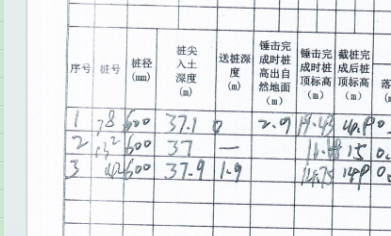 序号 桩号 桩径(mm) 桩尖入土深度(m) 送桩深度(m) 锤击完成时桩高出自然地面(m) 锤击完成时桩顶标高(m) 截桩完成后桩顶标高(m) 落
1 78 600 37.1 0 2.9
2 600 37 — 15 0.
3 600 37.9 1.9 14.75 149 0.